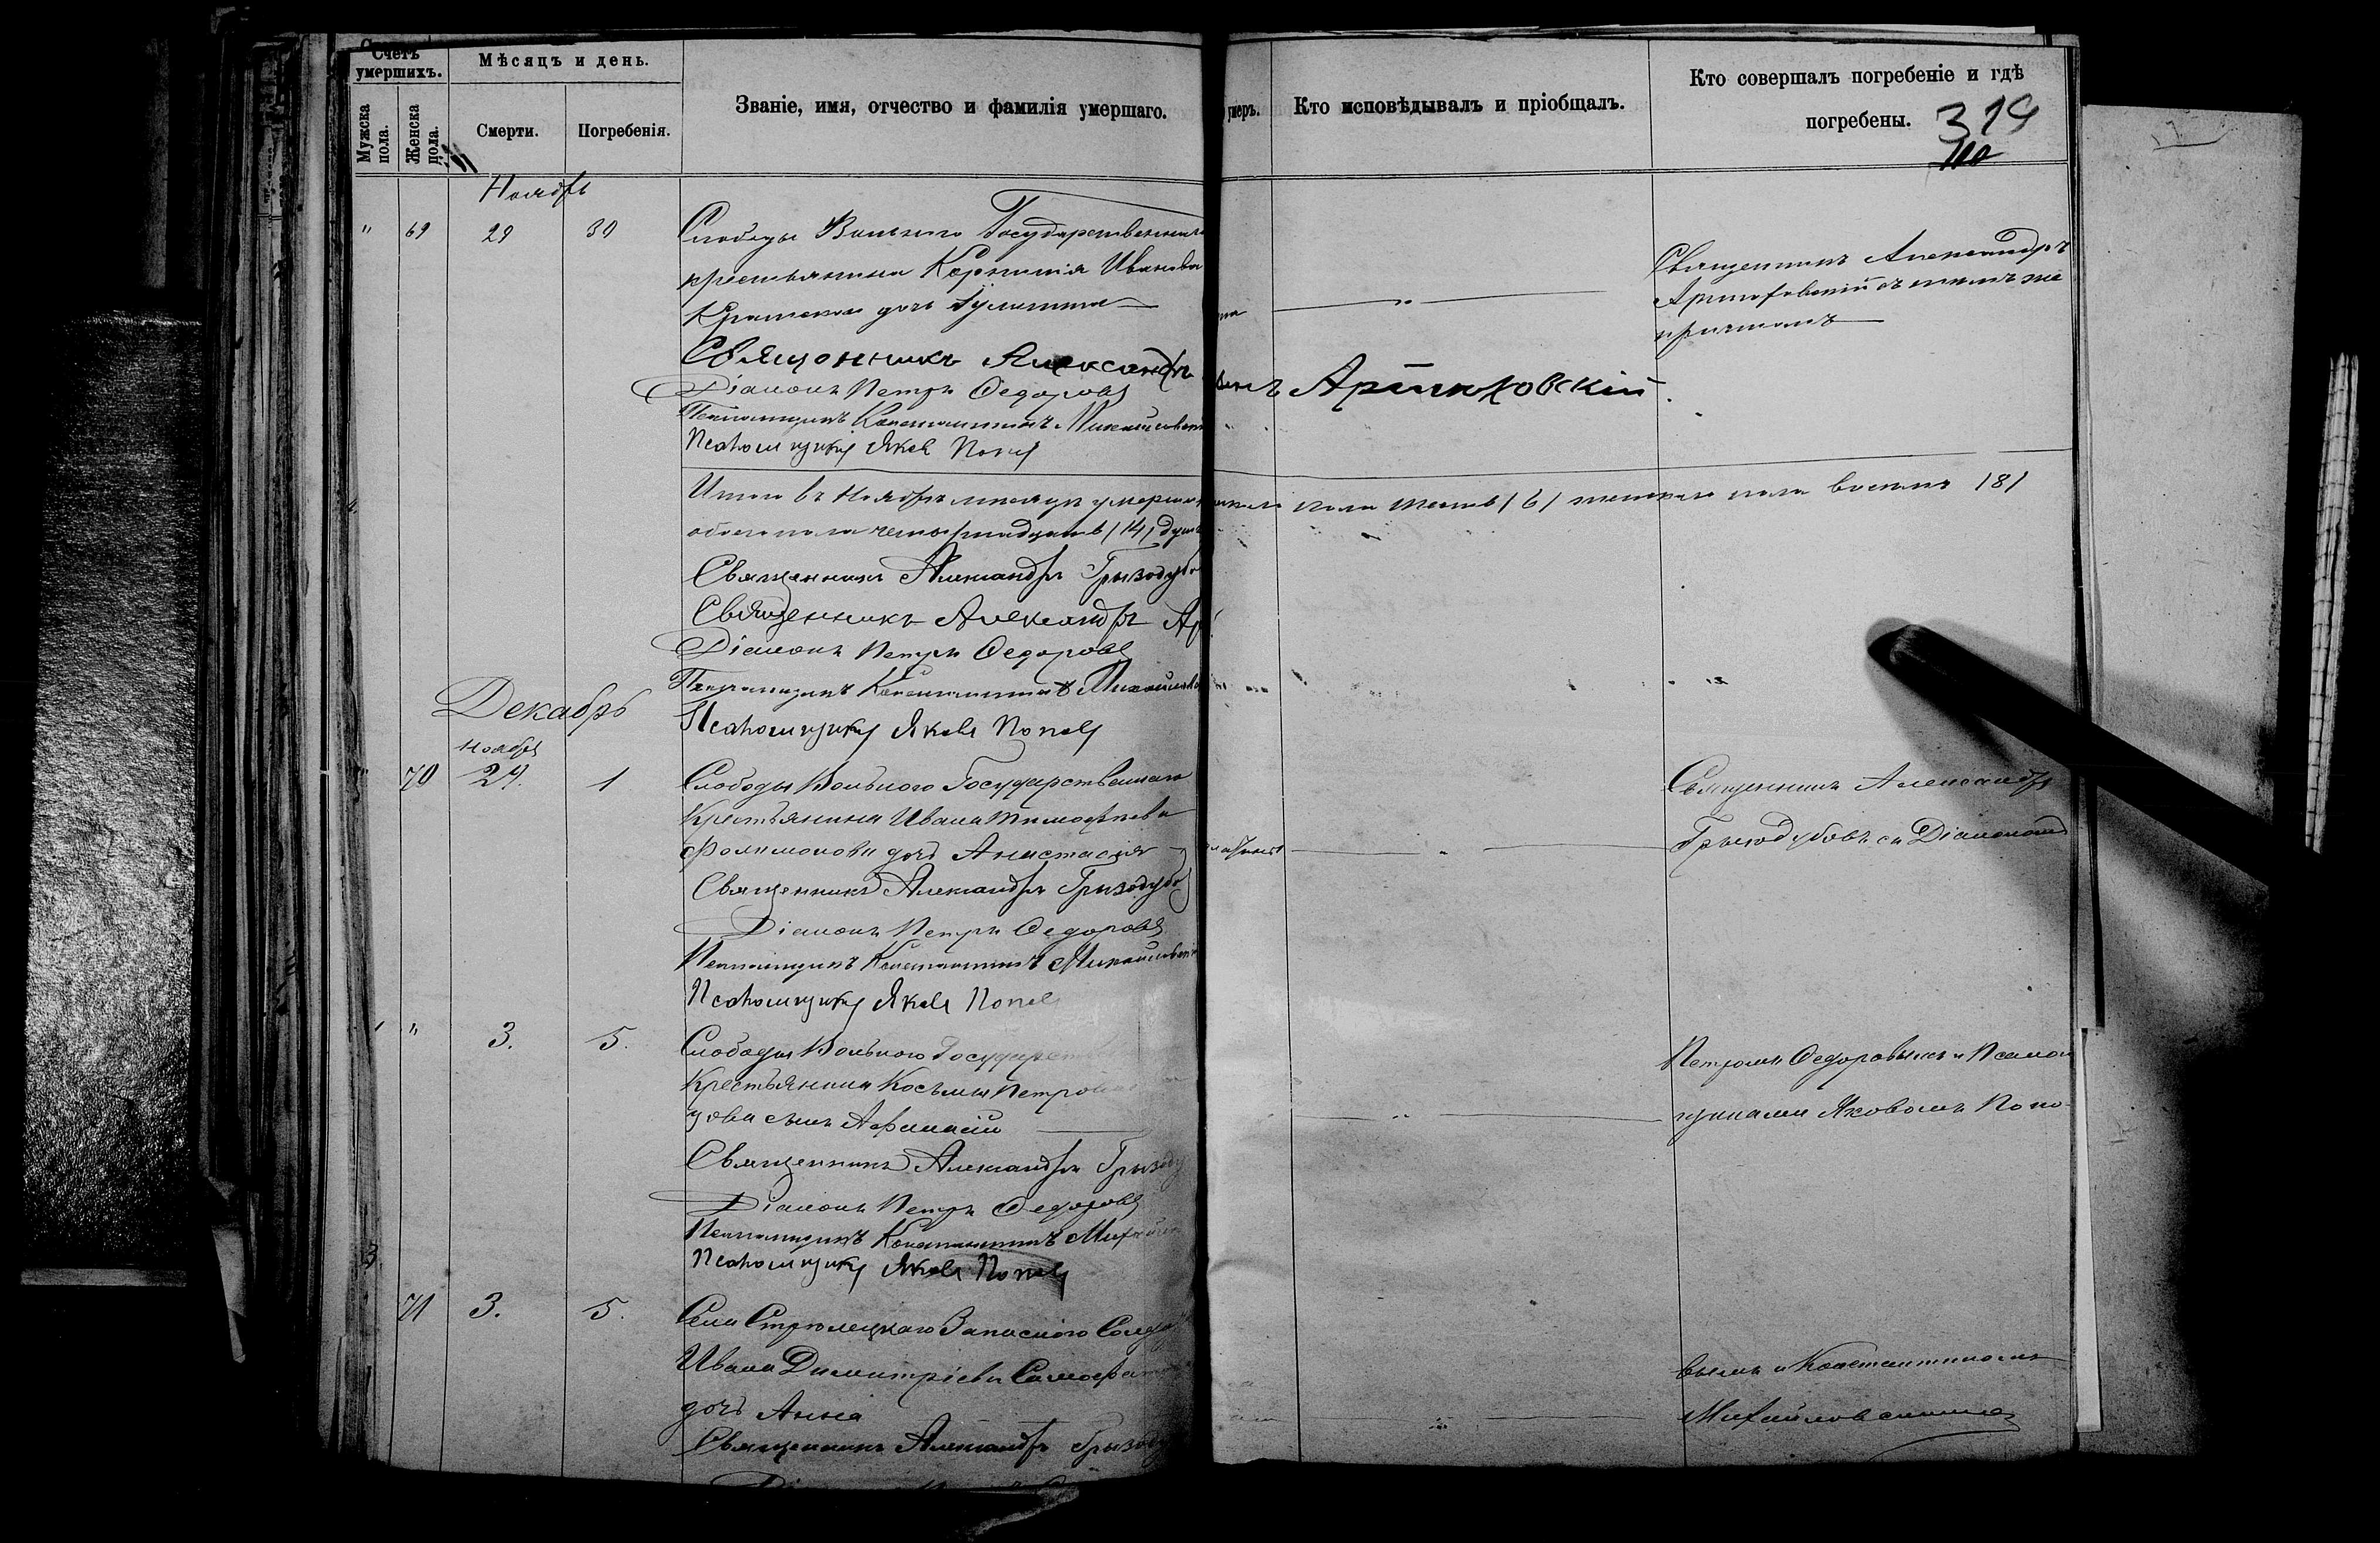 Счетъ умершихъ.
Мѣсяцъ и день.
Званіе, имя, отчество и фамилія умершаго.
Мужска пола.
Женска пола.
Смерти.
Погребенія.
умеръ.
Кто исповѣдывалъ и пріобщалъ.
Кто совершалъ погребеніе и гдѣ
погребены.
319
110
Ноябрь
" 69 29 30 Слободы Вольнаго Государственнаго
крестьянина Корнилія Иванова
дочь Іулиттія
Священникъ Александръ
съ тѣмъ же
причтомъ
Священникъ Александръ
Діаконъ Петръ Ѳедоровъ
Псаломщикъ Константинъ Михайловскій
Псаломщикъ Яковъ Поповъ
Итого въ Ноябрѣ мѣсяцѣ умерло мужескаго пола шесть /6/ женскаго пола восемь /8/
обоего пола четырнадцать /14/ душъ
Священникъ Александръ Грызодубо
Священникъ Александръ Ар
Діаконъ Петръ Ѳедоровъ
Псаломщикъ Константинъ Михайловскій
Псаломщикъ Яковъ Поповъ
Декабрь
Ноября
70 29. 1 Слободы Вольного Государственнаго
Крестьянина Ивана Тимофеева
Филимонова дочь Анастасія
Священникъ Александръ
Грызодубовъ съ Діакономъ
Священникъ Александръ Грызодубо
Діаконъ Петръ Ѳедоровъ
Псаломщикъ Константинъ Михайловскій
Псаломщикъ Яковъ Поповъ
" 3. 5. Слободы Вольного Государств
Крестьянина Косьмы Петрова
сынъ Афанасій
Петромъ Ѳедоровымъ и Псалом
щиками Яковомъ Попо-
Священникъ Александръ Грызоду
Діаконъ Петръ Ѳедоровъ
Псаломщикъ Константинъ Михайлов
Псаломщикъ Яковъ Поповъ
71 3. 5. Села Стрѣлецкаго Запасного Солда
Ивана Димитріева
дочь Анна
вымъ и Константиномъ
Михайловскимъ
Священникъ Александръ Грызо